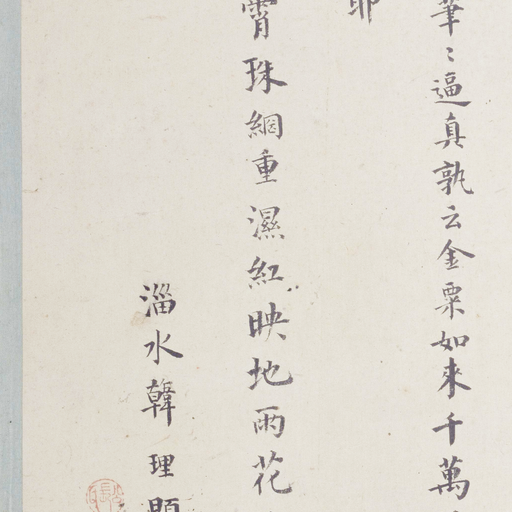 筆〻逼真孰云金粟如來千萬
耶
霄珠網重濕紅映地雨花
淄水韓理題